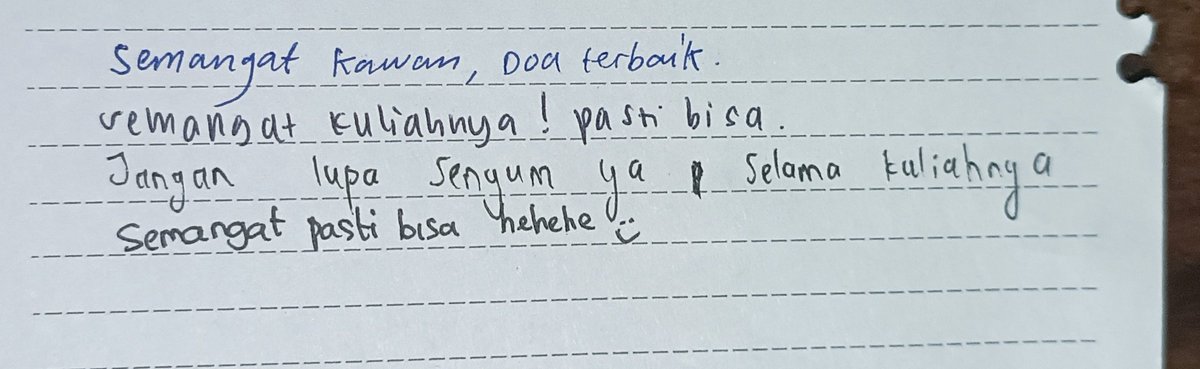 Semangat kawan, Doa terbaik.
semangat kuliahnya! pasti bisa.
Jangan lupa sengum ya selama kuliahnya
Semangat pasti bisa hehehe